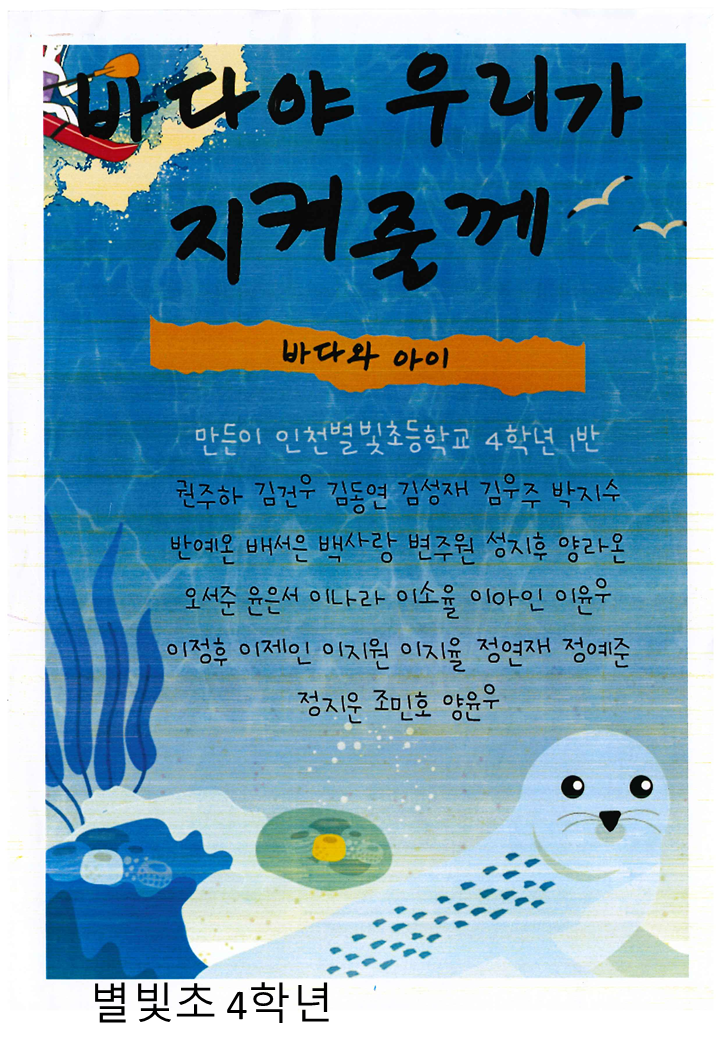 바다야 우리가
지켜줄께
바다와 아이
만든이 인천별빛초등학교 4학년 1반
권주하 김건우 김동연 김성재 김우주 박지수
반예온 배서은 백사랑 변주원 성지후 양라온
오서준 윤은서 이나라 이소율 이아인 이윤우
이정후 이제인 이지원 이지율 정연재 정예준
정지운 조민호 양윤우
별빛초 4학년